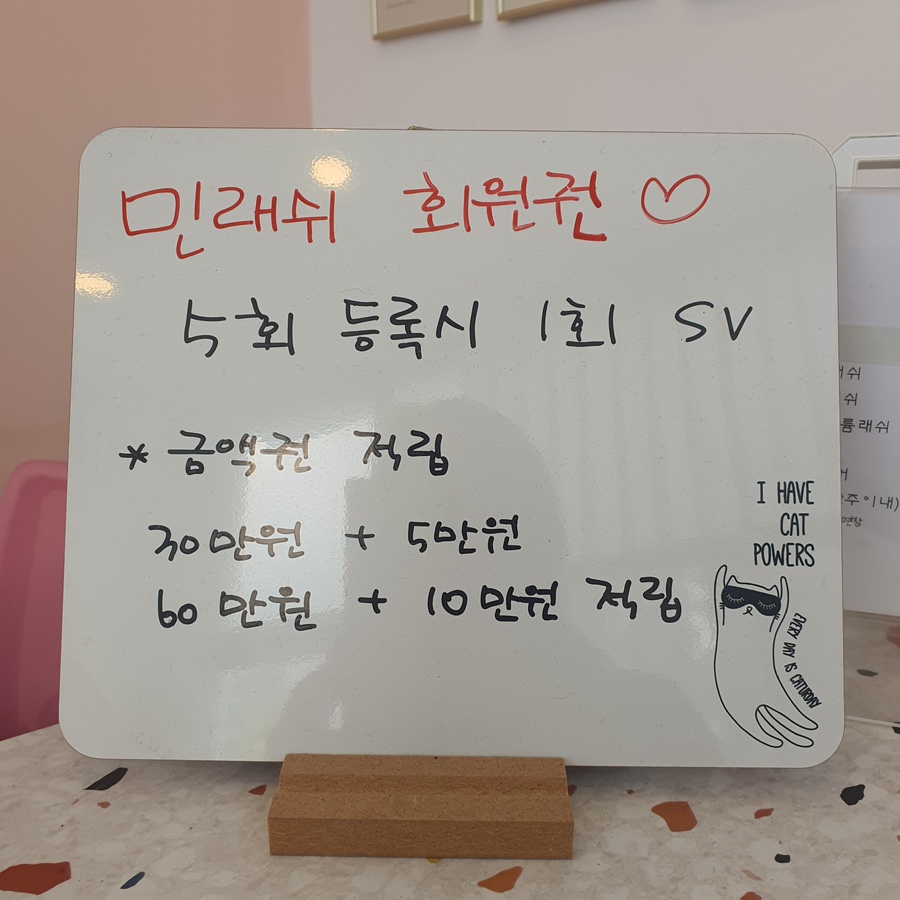 민래쉬 회원권 ♡
5회 등록시 1회 SV
* 금액권 적립
30만원 + 5만원
60만원 + 10만원 적립
I HAVE
CAT
POWERS
EVERY DAY IS CATURDAY
쉬
쉬
륨래쉬
주이내)
연장